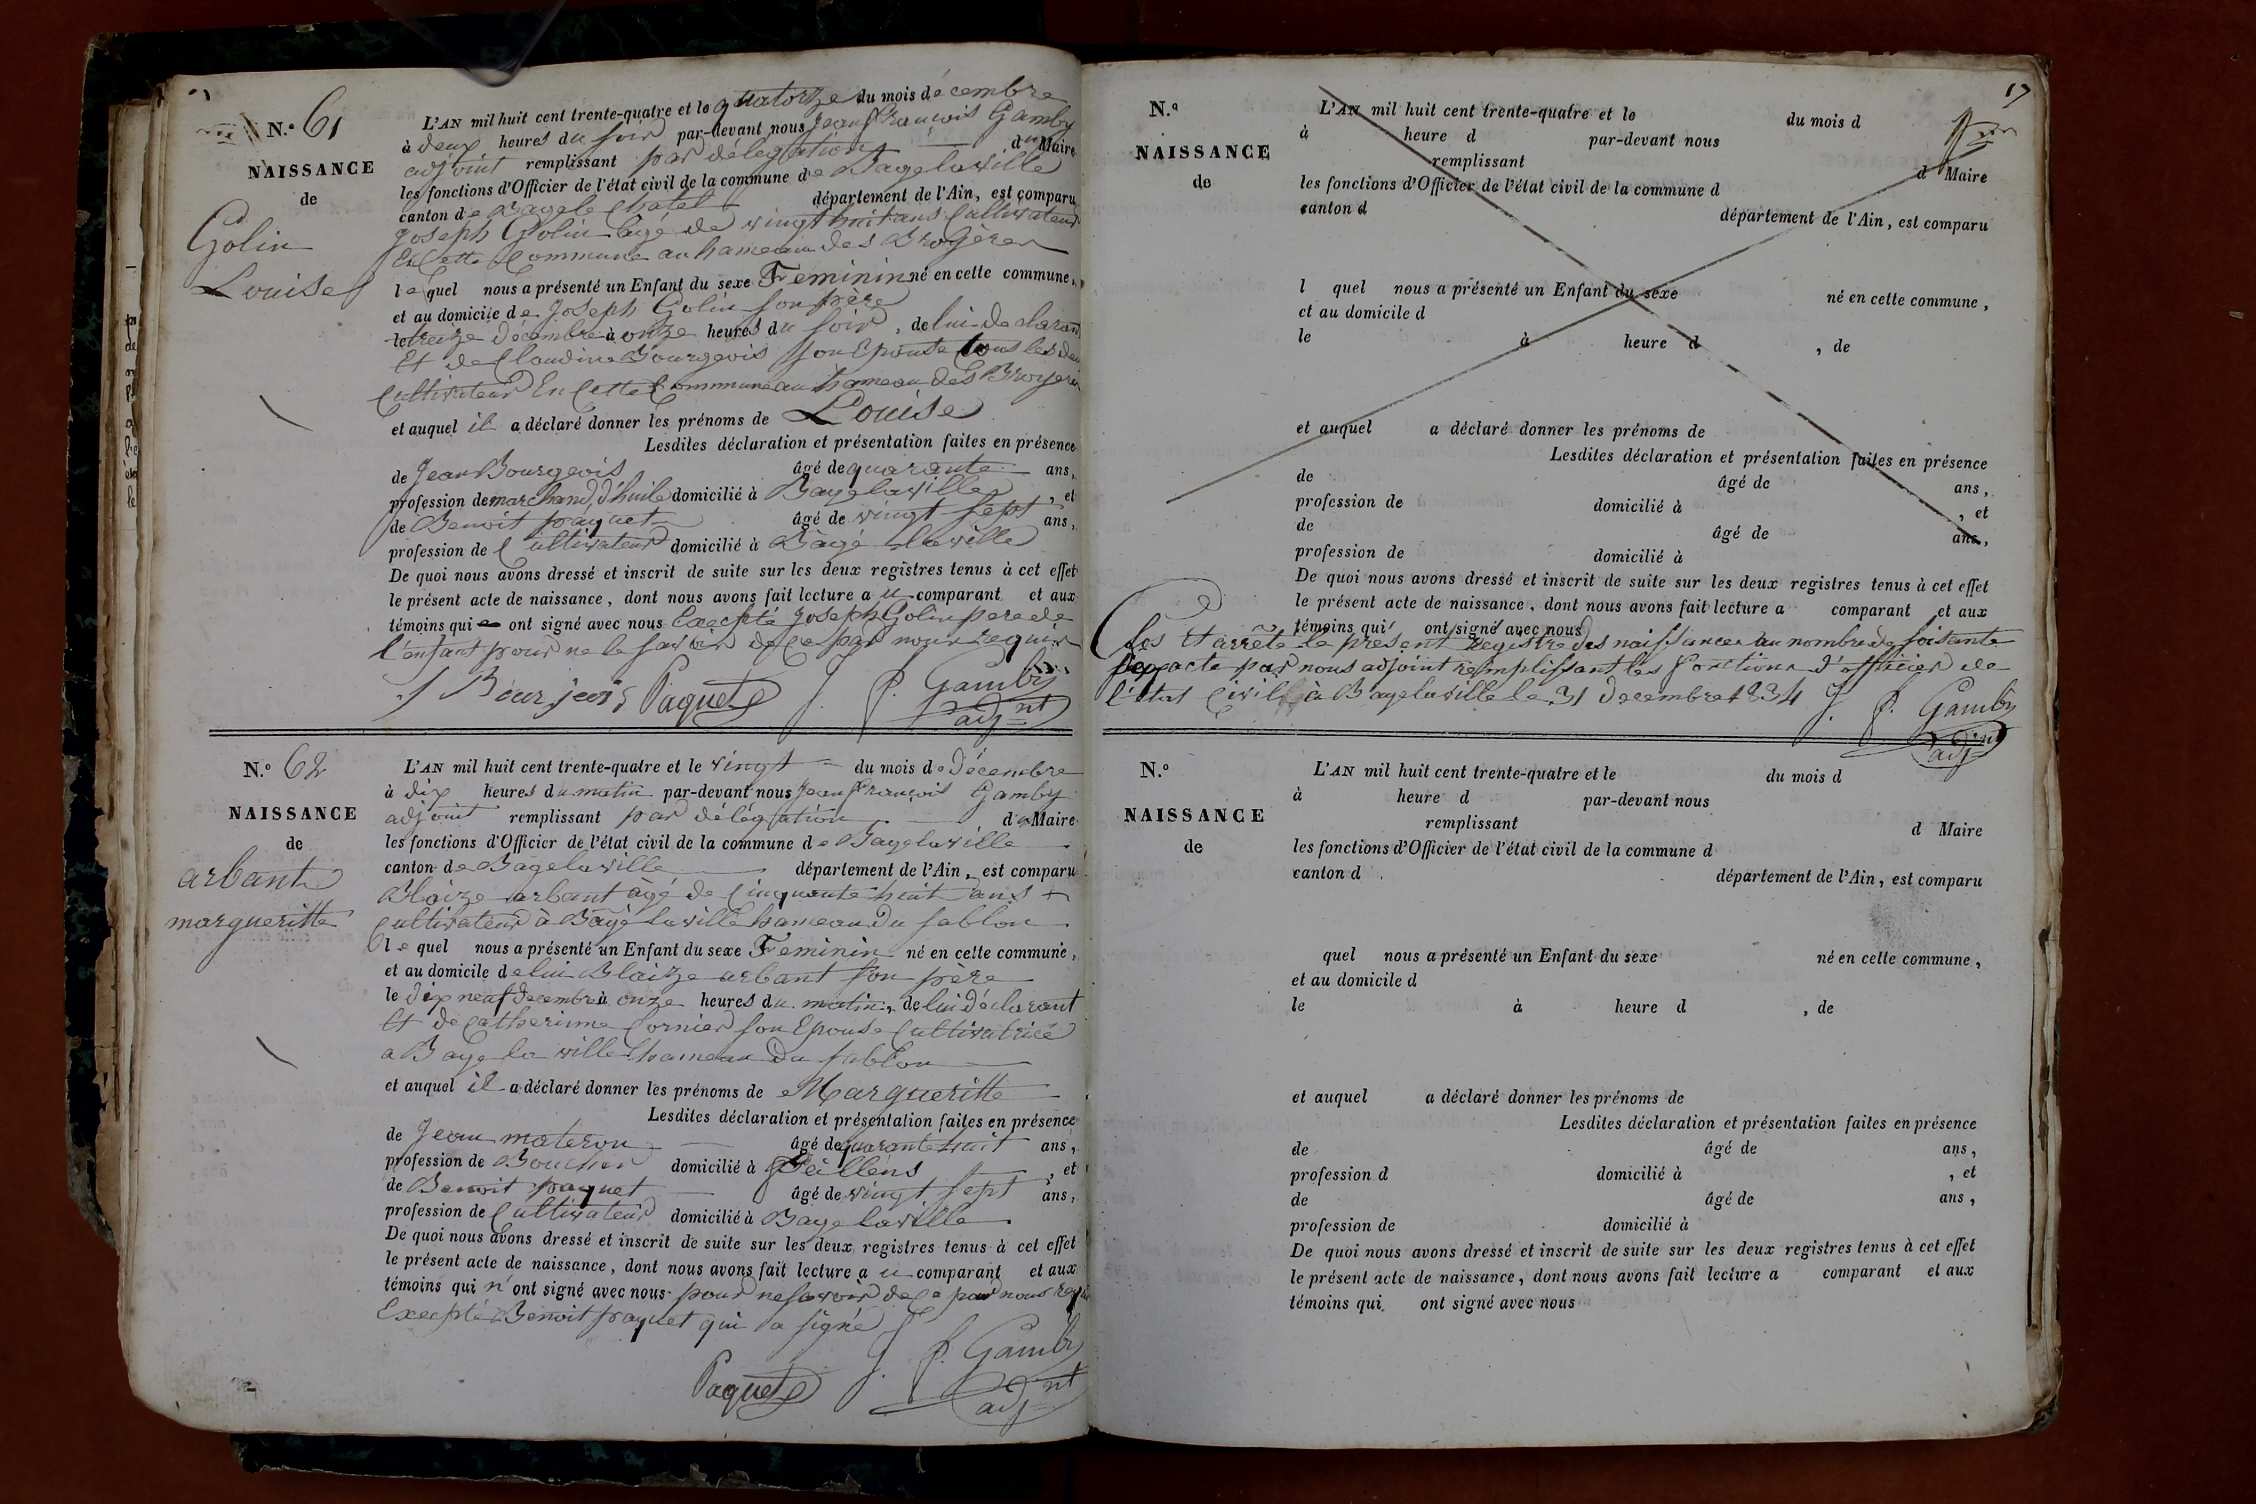 N.º 61
NAISSANCE
de
Golin
Louise
L'AN mil huit cent trente-quatre et le quatorze du mois décembre
à deux heures du soir par-devant nous Jean François Gamby
adjoint remplissant par délégation du Maire
les fonctions d'Officier de l'état civil de la commune de Bagelaville
canton de Bagele Chatel département de l'Ain, est comparu
Joseph Golin agé de vingt huit ans Cultivateur
En Cette Commune au hameau des
lequel nous a présenté un Enfant du sexe Feminin né en cette commune,
et au domicile de Joseph Golin son père
le treize décembre à onze heures du soir, de lui declarant
Et de Claudine Bourgeois son Epouse tous les deux
Cultivateur En Cette Commune au hameau des
et auquel il a déclaré donner les prénoms de Louise
Lesdites déclaration et présentation faites en présence
de Jean Bourgeois âgé de quarante ans,
profession de marchand d'huile domicilié à Bagelaville, et
de Benoit paquet âgé de vingt sept ans,
profession de Cultivateur domicilié à Bâgé laville
De quoi nous avons dressé et inscrit de suite sur les deux registres tenus à cet effet
le présent acte de naissance, dont nous avons fait lecture au comparant et aux
témoins qui ont signé avec nous Excepté Joseph Golin pere de
l'enfant pour ne le savoir de Ce par nous requis
Bourjeois Paquet J. f. Gamby
adj nt
N.º 62
NAISSANCE
de
arbant
margueritte
L'AN mil huit cent trente-quatre et le vingt du mois de Décembre
à dix heures du matin par-devant nous Jean François Gamby
adjoint remplissant par délégation de Maire
les fonctions d'Officier de l'état civil de la commune de Bagelaville
canton de Bagelaville département de l'Ain, est comparu
Blaize arbant agé de Cinquante huit ans
cultivateur à Bâgé laville hameau du sablon
lequel nous a présenté un Enfant du sexe Feminin né en cette commune,
et au domicile de lui Blaize arbant son père
le dix neuf Decembre à onze heures du matin, de lui déclarant
Et de Catherinne Cornier son Epouse Cultivatrice
a Bage la ville hameau du sablon
et auquel il a déclaré donner les prénoms de Margueritte
Lesdites déclaration et présentation faites en présence
de Jean materon âgé de quarante huit ans,
profession de Boucher domicilié à feillens, et
de Benoit paquet âgé de vingt sept ans,
profession de Cultivateur domicilié à Bage laville
De quoi nous avons dressé et inscrit de suite sur les deux registres tenus à cet effet
le présent acte de naissance, dont nous avons fait lecture au comparant et aux
témoins qui n'ont signé avec nous pour ne savoir de Ce par nous
Excepté Benoit paquet qui a signé
Paquet J. f. Gamby
adj nt
17
N.º
NAISSANCE
de
L'AN mil huit cent trente-quatre et le du mois d
à heure d par-devant nous
remplissant d Maire
les fonctions d'Officier de l'état civil de la commune d
canton d département de l'Ain, est comparu
l quel nous a présenté un Enfant du sexe né en cette commune,
et au domicile d
le à heure d , de
et auquel a déclaré donner les prénoms de
Lesdites déclaration et présentation faites en présence
de âgé de ans,
profession de domicilié à , et
de âgé de ans,
profession de domicilié à
De quoi nous avons dressé et inscrit de suite sur les deux registres tenus à cet effet
le présent acte de naissance, dont nous avons fait lecture a comparant et aux
témoins qui ont signé avec nous
Clos Et arrêté le present registre des naissances au nombre de soisante
acte par nous adjoint remplissant les fonctions d'officier de
l'état Civil à Bagelaville le 31 decembre 1834 J. f. Gamby
adj nt
N.º
NAISSANCE
de
L'AN mil huit cent trente-quatre et le du mois d
à heure d par-devant nous
remplissant d Maire
les fonctions d'Officier de l'état civil de la commune d
canton d département de l'Ain, est comparu
quel nous a présenté un Enfant du sexe né en cette commune,
et au domicile d
le à heure d , de
et auquel a déclaré donner les prénoms de
Lesdites déclaration et présentation faites en présence
de âgé de ans,
profession d domicilié à , et
de âgé de ans,
profession de domicilié à
De quoi nous avons dressé et inscrit de suite sur les deux registres tenus à cet effet
le présent acte de naissance, dont nous avons fait lecture a comparant et aux
témoins qui ont signé avec nous